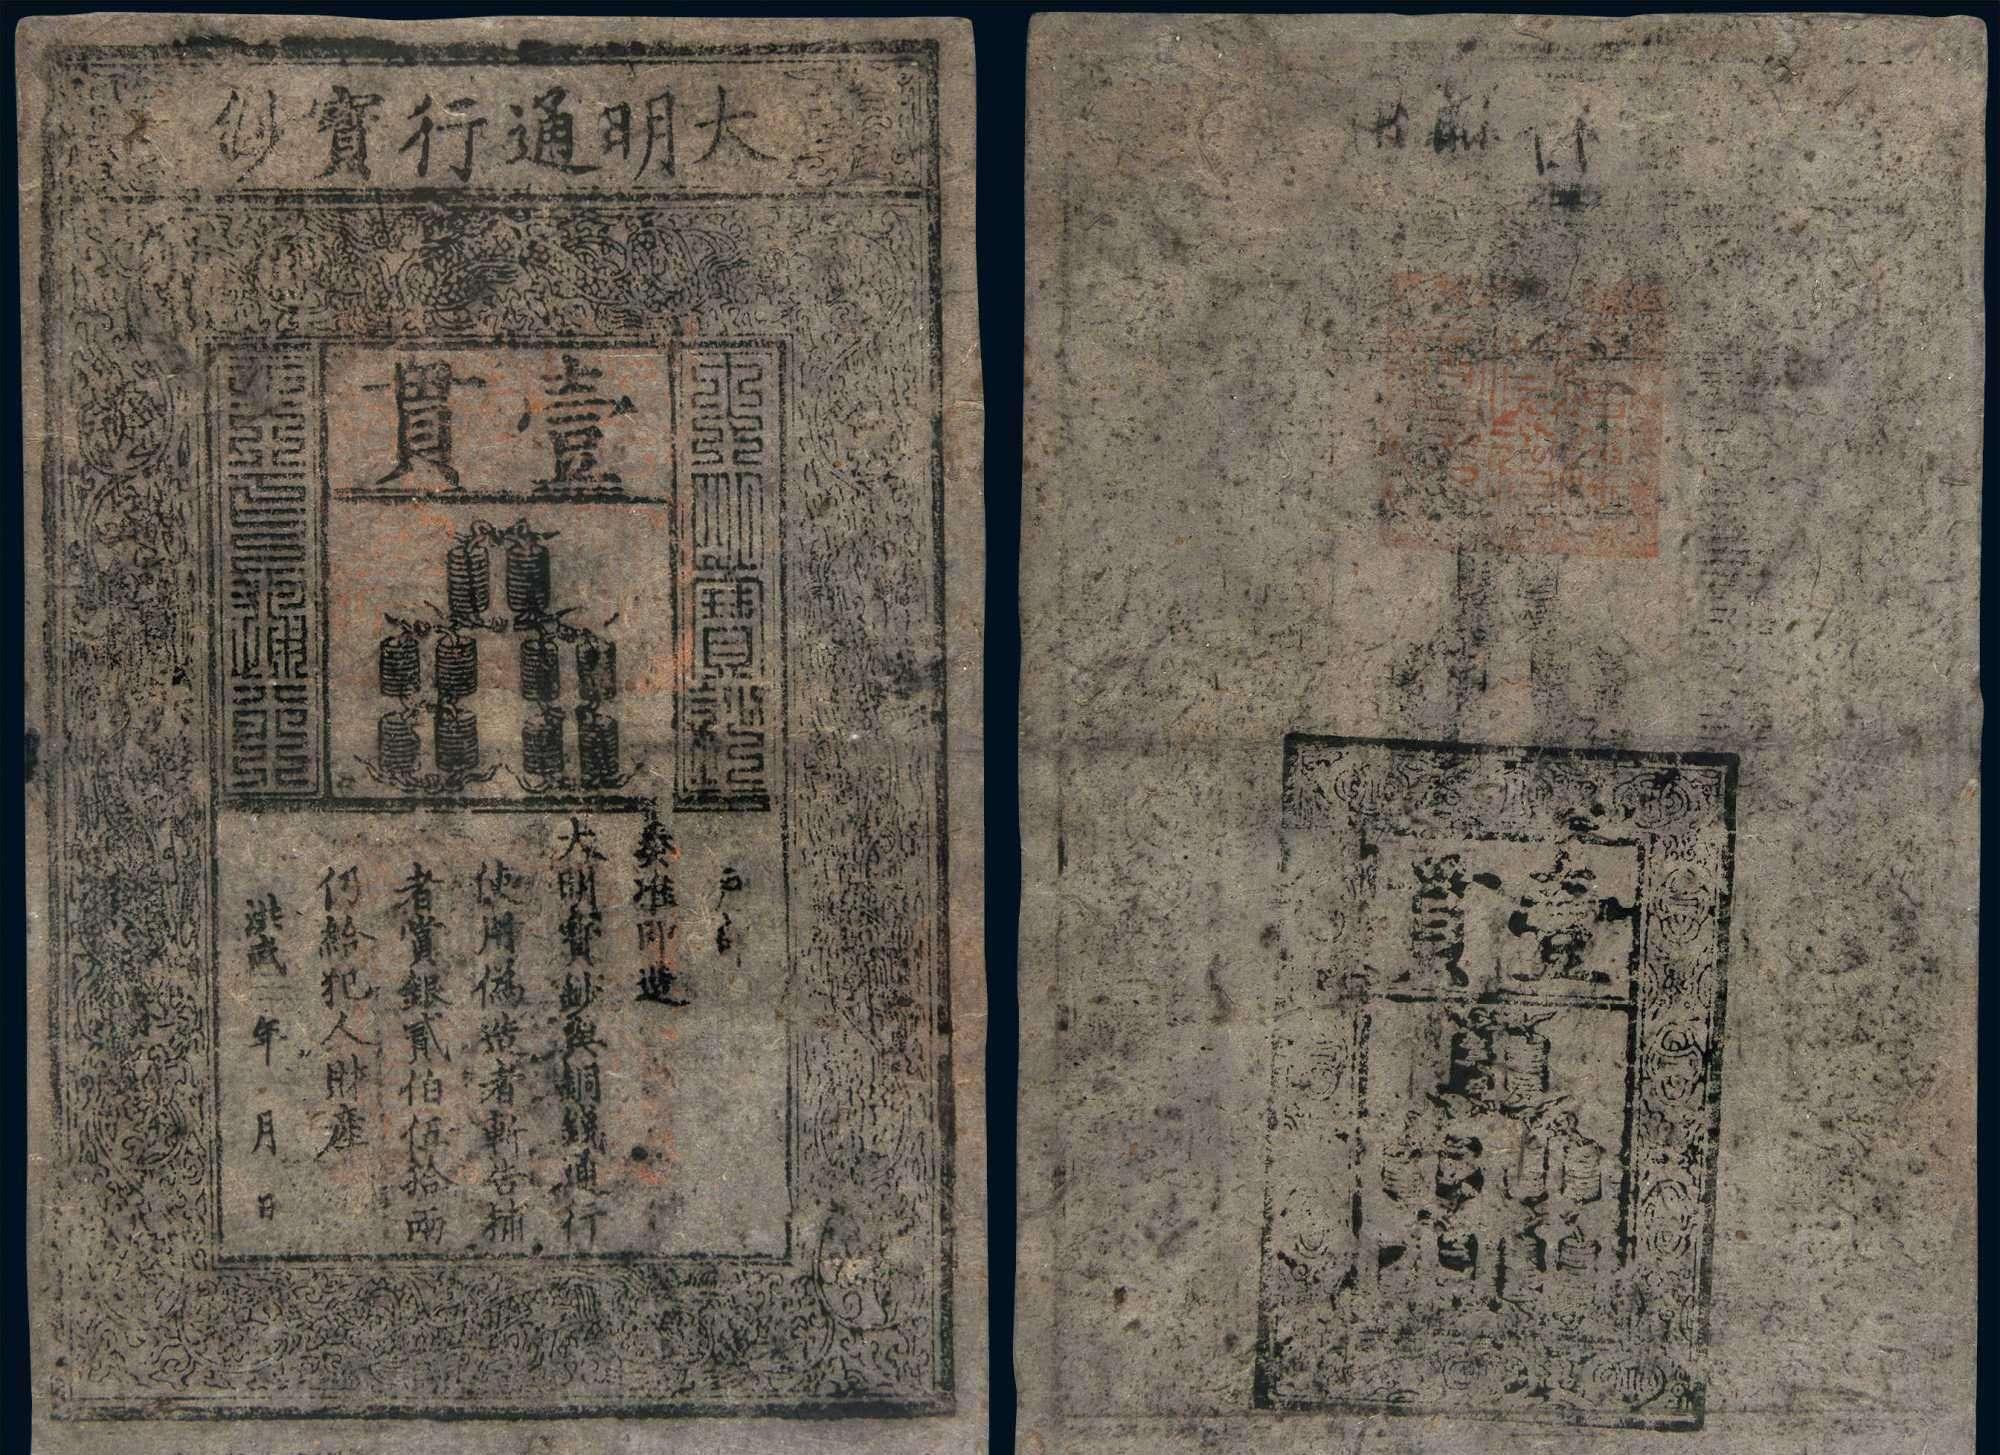 大明通行寶鈔
大明寶鈔
壹貫
天下通行
戶部
奏准印造
大明寶鈔與銅錢通行
使用偽造者斬告捕
者賞銀貳伯伍拾兩
仍給犯人財產
洪武 年 月 日
壹貫